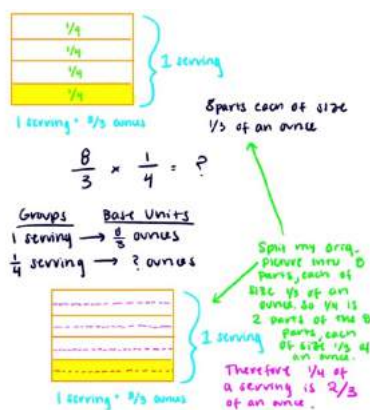 1/4
1/4
1/4
1/4
1 serving
1 serving = 8/3 ounces
8 parts each of size
1/3 of an ounce
8/3 × 1/4 = ?
Groups Base Units
1 serving → 8/3 ounces
1/4 serving → ? ounces
Split my orig.
picture into 8
parts, each of
size 1/3 of an
ounce. So 1/4 is
2 parts of the 8
parts, each
of size 1/3 of
an ounce.
1 serving
1 serving = 8/3 ounces
Therefore 1/4 of
a serving is 2/3
of an ounce.